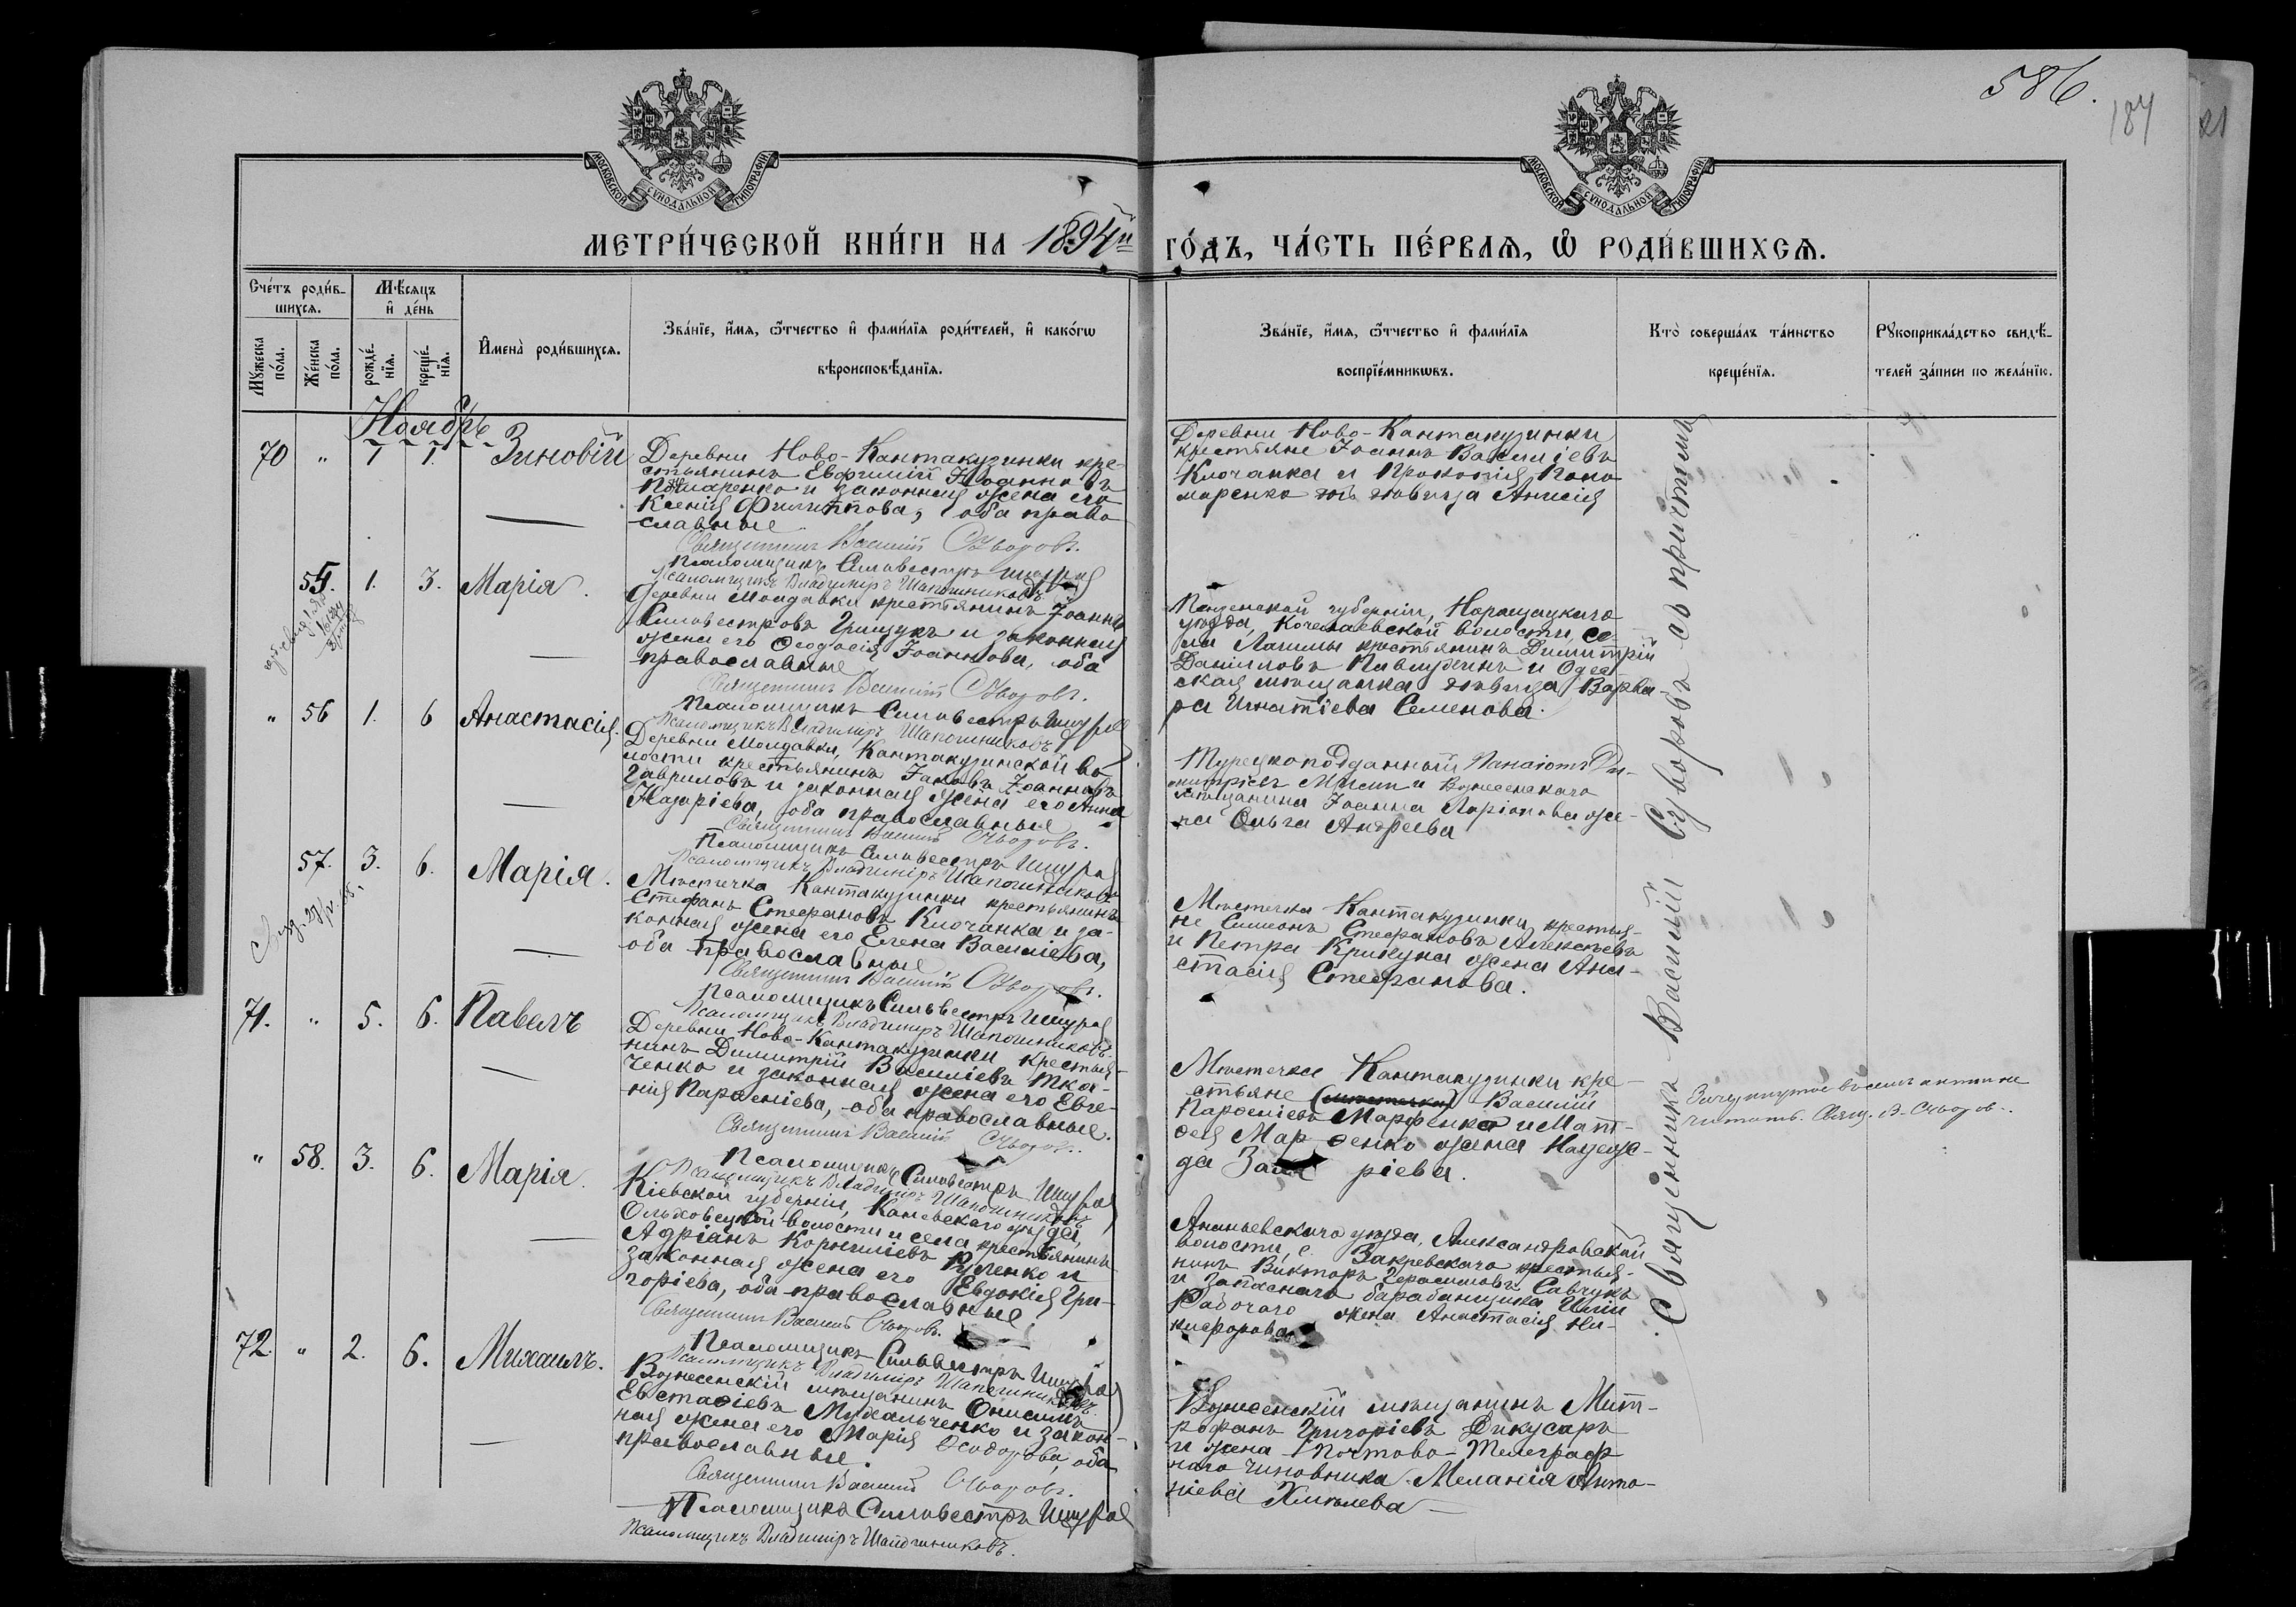 586.
187
МОСКОВСКОЙ СѴНОДАЛЬНОЙ ТИПОГРАФІИ
МОСКОВСКОЙ СѴНОДАЛЬНОЙ ТИПОГРАФІИ
МЕТРИ́ЧЕСКОЙ КНИ́ГИ НА 1894й ГО́ДЪ, ЧА́СТЬ ПЕ́РВАЯ, Ѡ РОДИ́ВШИХСЯ.
Сче́тъ роди́в-
шихся.
Мꙋ́жеска по́ла.
Же́нска по́ла.
Мѣ́сяцъ
и҆ де́нь
рожде́-
нїя.
креще́-
нїя.
И҆мена̀ роди́вшихся.
Зва́нїе, и҆́мя, ѻ҆́тчество и҆ фами́лїя роди́телей, и҆ како́гѡ
вѣроисповѣ́данїя.
Зва́нїе, и҆́мя, ѻ҆́тчество и҆ фами́лїя
воспрїе́мникѡвъ.
Кто̀ соверша́лъ та́инство
креще́нїя.
Рꙋкоприкла́дство свидѣ́-
телей за́писи по жела́нїю.
Ноябрь
70 " 1 1. Зиновій
Деревни Ново-Кантакузинки кре-
стьянинъ Евфимій Іоанновъ
Пономаренко и законная жена его
Ксенія Филиппова, оба право-
славные
Священникъ Василій Суворовъ.
Псаломщикъ Сильвестръ
Псаломщикъ Владиміръ Шапошниковъ
Деревни Ново-Кантакузинки
крестьяне Іоаннъ Васильевъ
Клочанка и Прокопія Поно
маренко дѣвица Анисія
55. 1. 3. Марія.
Деревни Молдавки крестьянинъ Іоаннъ
Сильвестровъ Грищукъ и законная
жена его Ѳеодосія Іоаннова, оба
православные
Священникъ Василій Суворовъ.
Псаломщикъ Сильвестръ
Псаломщикъ Владиміръ Шапошниковъ
Пензенской губерніи, Наровчатскаго
уѣзда, волости, се-
ла крестьянинъ Димитрій
Даниловъ и Одес
ская мѣщанка дѣвица Варва
ра Игнатіева Семенова.
" 56 1. 6 Анастасія.
Деревни Молдавки, Кантакузинской во
лости крестьянинъ Іаковъ Іоанновъ
Гавриловъ и законная жена его Анна
Назаріева, оба православные
Священникъ Василій Суворовъ.
Псаломщикъ Сильвестръ
Псаломщикъ Владиміръ Шапошниковъ
Турецкоподданный Панаіотъ Ди-
митріевъ и Вознесенскаго
мѣщанина Іоанна Ларіонова же-
на Ольга Андреева
57. 3. 6. Марія.
Мѣстечка Кантакузинки крестьянинъ
Стефанъ Стефановъ Клочанка и за-
конная жена его Елена Василіева,
оба православные
Священникъ Василій Суворовъ.
Псаломщикъ Сильвестръ
Псаломщикъ Владиміръ Шапошниковъ
Мѣстечка Кантакузинки крестья-
не Симеонъ Стефановъ Алексѣевъ
и Петра Крикуна жена Ана-
стасія Стефанова.
71. " 5. 6. Павелъ
Деревни Ново-Кантакузинки крестья-
нинъ Димитрій Василіевъ Тка-
ченко и законная жена его Евге-
нія Парѳеніева, оба православные.
Священникъ Василій Суворовъ.
Псаломщикъ Сильвестръ
Псаломщикъ Владиміръ Шапошниковъ
Мѣстечка Кантакузинки кре-
стьяне (мѣстечка) Василій
Парѳеніевъ Марфенко и Мат-
ѳея Мар ѳенко жена Надеж-
да Заха ріева.
Зачеркнутое въ семъ актѣ не
читать. Свящ. В. Суворовъ.
" 58. 3. 6. Марія.
Кіевской губерніи, Каневскаго уѣзда,
Ольховецкой волости и села крестьянинъ
Адріанъ Корниліевъ Руденко и
законная жена его Евдокія Гри-
горіева, оба православные
Священникъ Василій Суворовъ.
Псаломщикъ Сильвестръ
Псаломщикъ Владиміръ Шапошниковъ
Ананьевскаго уѣзда, Александровской
волости, с. Закревскаго крестья-
нинъ Викторъ Герасимовъ Савчукъ
и запаснаго барабанщика Иліи
Рабочаго жена Анастасія Ни-
кифорова
72. " 2. 6. Михаилъ.
Вознесенскій мѣщанинъ Онисимъ
Евстаѳіевъ Михальченко и закон-
ная жена его Марія Ѳеодорова, оба
православные.
Священникъ Василій Суворовъ.
Псаломщикъ Сильвестръ
Псаломщикъ Владиміръ Шапошниковъ.
Вознесенскій мѣщанинъ Мит-
рофанъ Григоріевъ Дикусаръ
и жена Почтово-Телеграф
наго чиновника Меланія Анто-
ніева Хмѣлева
Священникъ Василій Суворовъ съ причтомъ